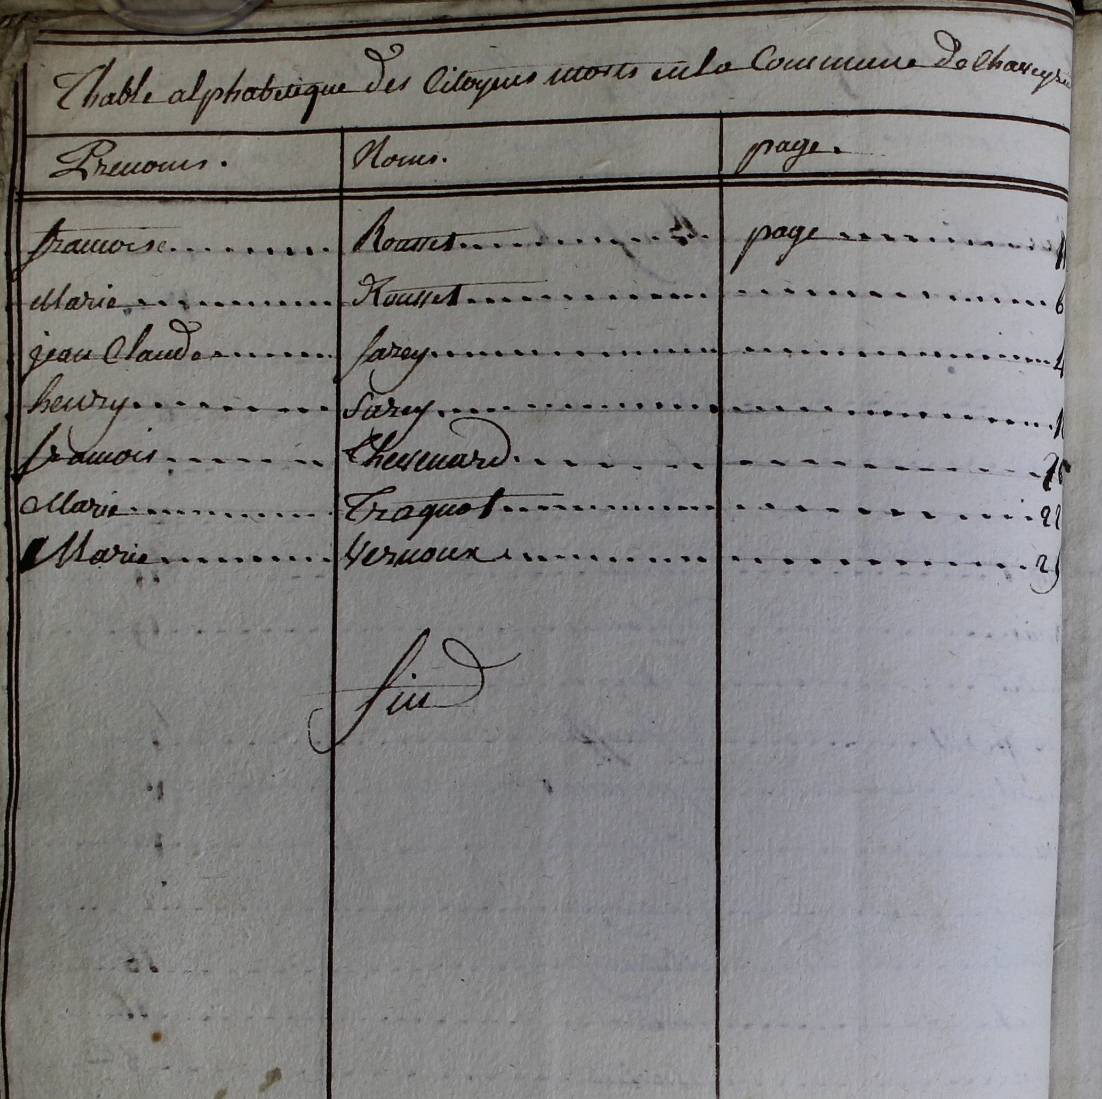 Thable alphabetique des Citoyens morts en la Commune de
Prenoms. Noms. page.
francoise Rousset page
Marie Rousset 6
jean Claude Sarey 4
henry Sarey
francois Thevenard
Marie Traquot 22
Marie Vernoux
fin